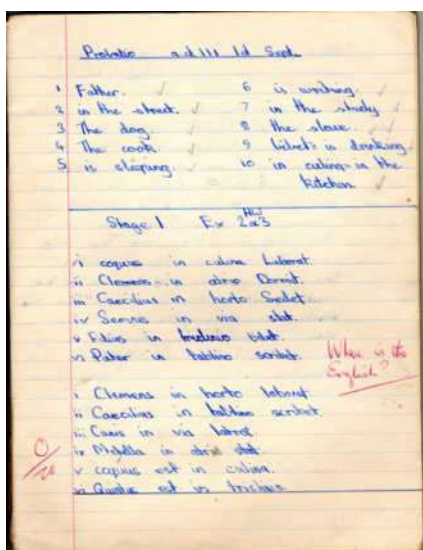 Probatio a.d III Id Sept.
1 Father.
2 in the street.
3 The dog.
4 The cook
5 is sleeping.
6 is writing.
7 in the study
8 the slave.
9 is drinking.
10 in the kitchen
Stage 1 Ex 2 3
i coquus in culina Laborat.
ii Clemens in atrio Dormit.
iii Caecilius in horto Sedet
iv Servus in via stat.
v Filius in bibit.
vi Pater in tablino scribit.
Where is the English?
i Clemens in horto laborat
ii Caecilius in tablino scribit.
iii Canis in via latrat
iv Metella in atrio stat.
v coquus est in culina.
vi est in
0/20